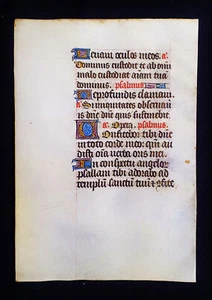 Levavi oculos meos. a.
Dominus custodit te ab om̄i
malo custodiat aīam tuā
dominus. psalmus.
De profundis clamavi.
a. Si iniquitates observaū
is dn̄e dn̄e quis sustinebit.
a. Opera. psalmus.
Confitebor tibi dn̄e
in toto corde meo: qm̄ au
disti oīa verba oris mei.
In conspectu angelor
psallam tibi adorabo ad
templū sanctū tuū &